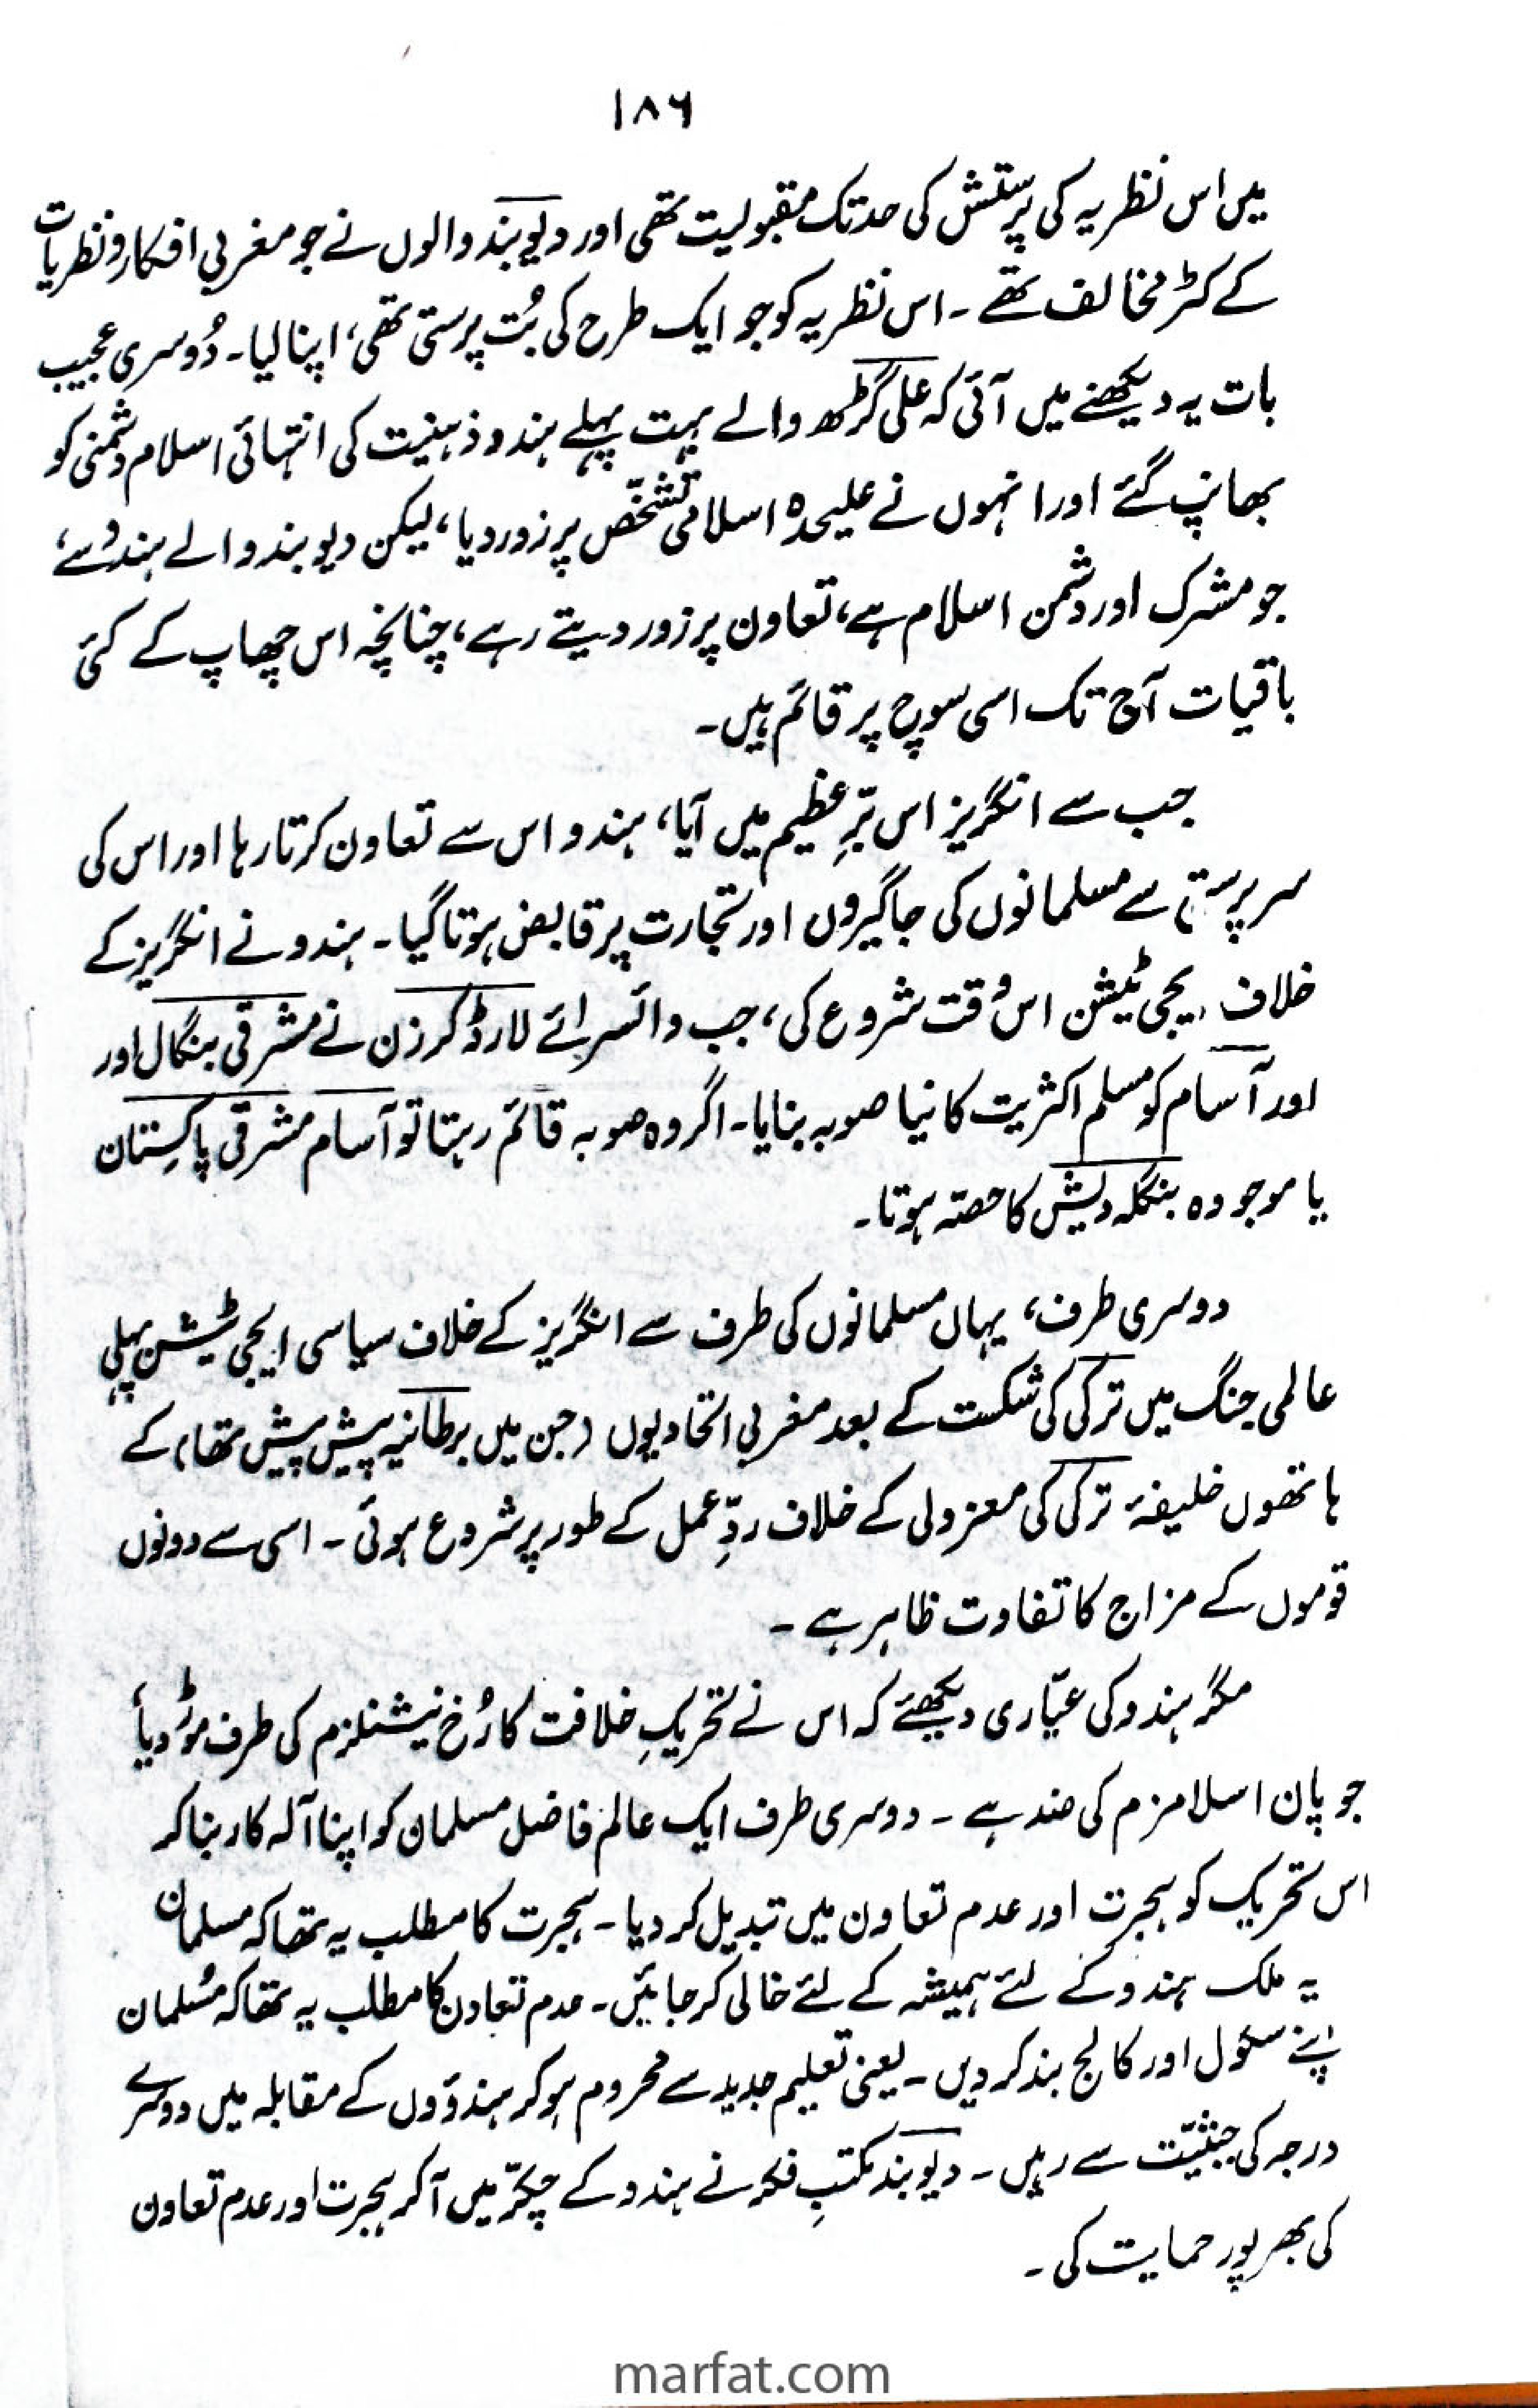 ۱۸۶
میں اس نظریہ کی پرستش کی حد تک مقبولیت تھی اور دیوبند والوں نے جو مغربی افکار و نظریات
کے کٹر مخالف تھے ۔ اس نظریہ کو جو ایک طرح کی بُت پرستی تھی، اپنا لیا۔ دُوسری عجیب
بات یہ دیکھنے میں آئی کہ علی گڑھ والے بہت پہلے ہندو ذہنیت کی انتہائی اسلام دشمنی کو
بھانپ گئے اور انہوں نے علیحدہ اسلامی تشخّص پر زور دیا، لیکن دیوبند والے ہندو سے،
جو مشرک اور دشمن اسلام ہے، تعاون پر زور دیتے رہے، چنانچہ اس چھاپ کے کئی
باقیات آج تک اسی سوچ پر قائم ہیں۔
جب سے انگریز اس برِّ عظیم میں آیا، ہندو اس سے تعاون کرتا رہا اور اس کی
سرپرستی سے مسلمانوں کی جاگیروں اور تجارت پر قابض ہوتا گیا۔ ہندو نے انگریز کے
خلاف یجی ٹیشن اس وقت شروع کی، جب وائسرائے لارڈ کرزن نے مشرقی بنگال اور
اور آسام کو مسلم اکثریت کا نیا صوبہ بنایا۔ اگر وہ صوبہ قائم رہتا تو آسام مشرقی پاکستان
یا موجودہ بنگلہ دیش کا حصّہ ہوتا۔
دوسری طرف، یہاں مسلمانوں کی طرف سے انگریز کے خلاف سیاسی ایجی ٹیشن پہلی
عالمی جنگ میں ترکی کی شکست کے بعد مغربی اتحادیوں (جن میں برطانیہ پیش پیش تھا) کے
ہاتھوں خلیفۂ ترکی کی معزولی کے خلاف ردِّ عمل کے طور پر شروع ہوئی ۔ اسی سے دونوں
قوموں کے مزاج کا تفاوت ظاہر ہے ۔
مگر ہندو کی عیّاری دیکھئے کہ اس نے تحریکِ خلافت کا رُخ نیشنلزم کی طرف موڑ دیا،
جو پان اسلامزم کی ضد ہے ۔ دوسری طرف ایک عالم فاضل مسلمان کو اپنا آلہ کار بنا کر
اس تحریک کو ہجرت اور عدم تعاون میں تبدیل کر دیا ۔ ہجرت کا مطلب یہ تھا کہ مسلمان
یہ ملک ہندو کے لئے ہمیشہ کے لئے خالی کر جائیں۔ عدم تعاون کا مطلب یہ تھا کہ مُسلمان
اپنے سکول اور کالج بند کر دیں ۔ یعنی تعلیم جدید سے محروم ہو کر ہندوؤں کے مقابلہ میں دوسرے
درجہ کی حیثیّت سے رہیں ۔ دیوبند مکتبِ فکر نے ہندو کے چکّر میں آکر ہجرت اور عدم تعاون
کی بھرپور حمایت کی ۔
marfat.com